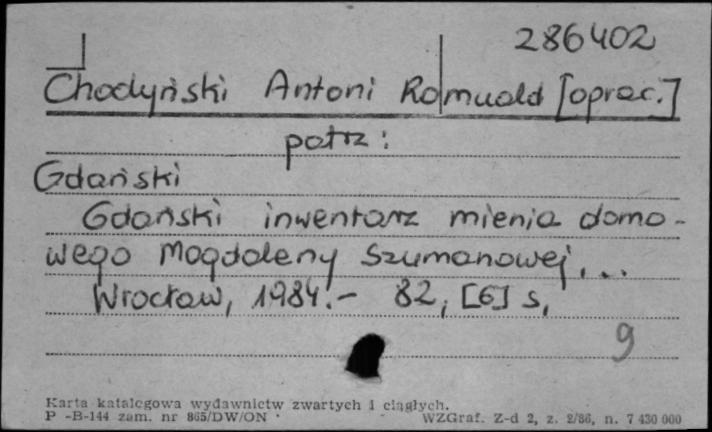 286402
Chodyński Antoni Romuald [oprac.]
patrz:
Gdański
Gdański inwentarz mienia domo-
wego Magdaleny Szumanowej,...
Wrocław, 1984.- 82, [6] s,
9
Karta katalogowa wydawnictw zwartych i ciągłych.
P -B-144 zam. nr 865/DW/ON WZGraf. Z-d 2, z. 2/86, n. 7 430 000